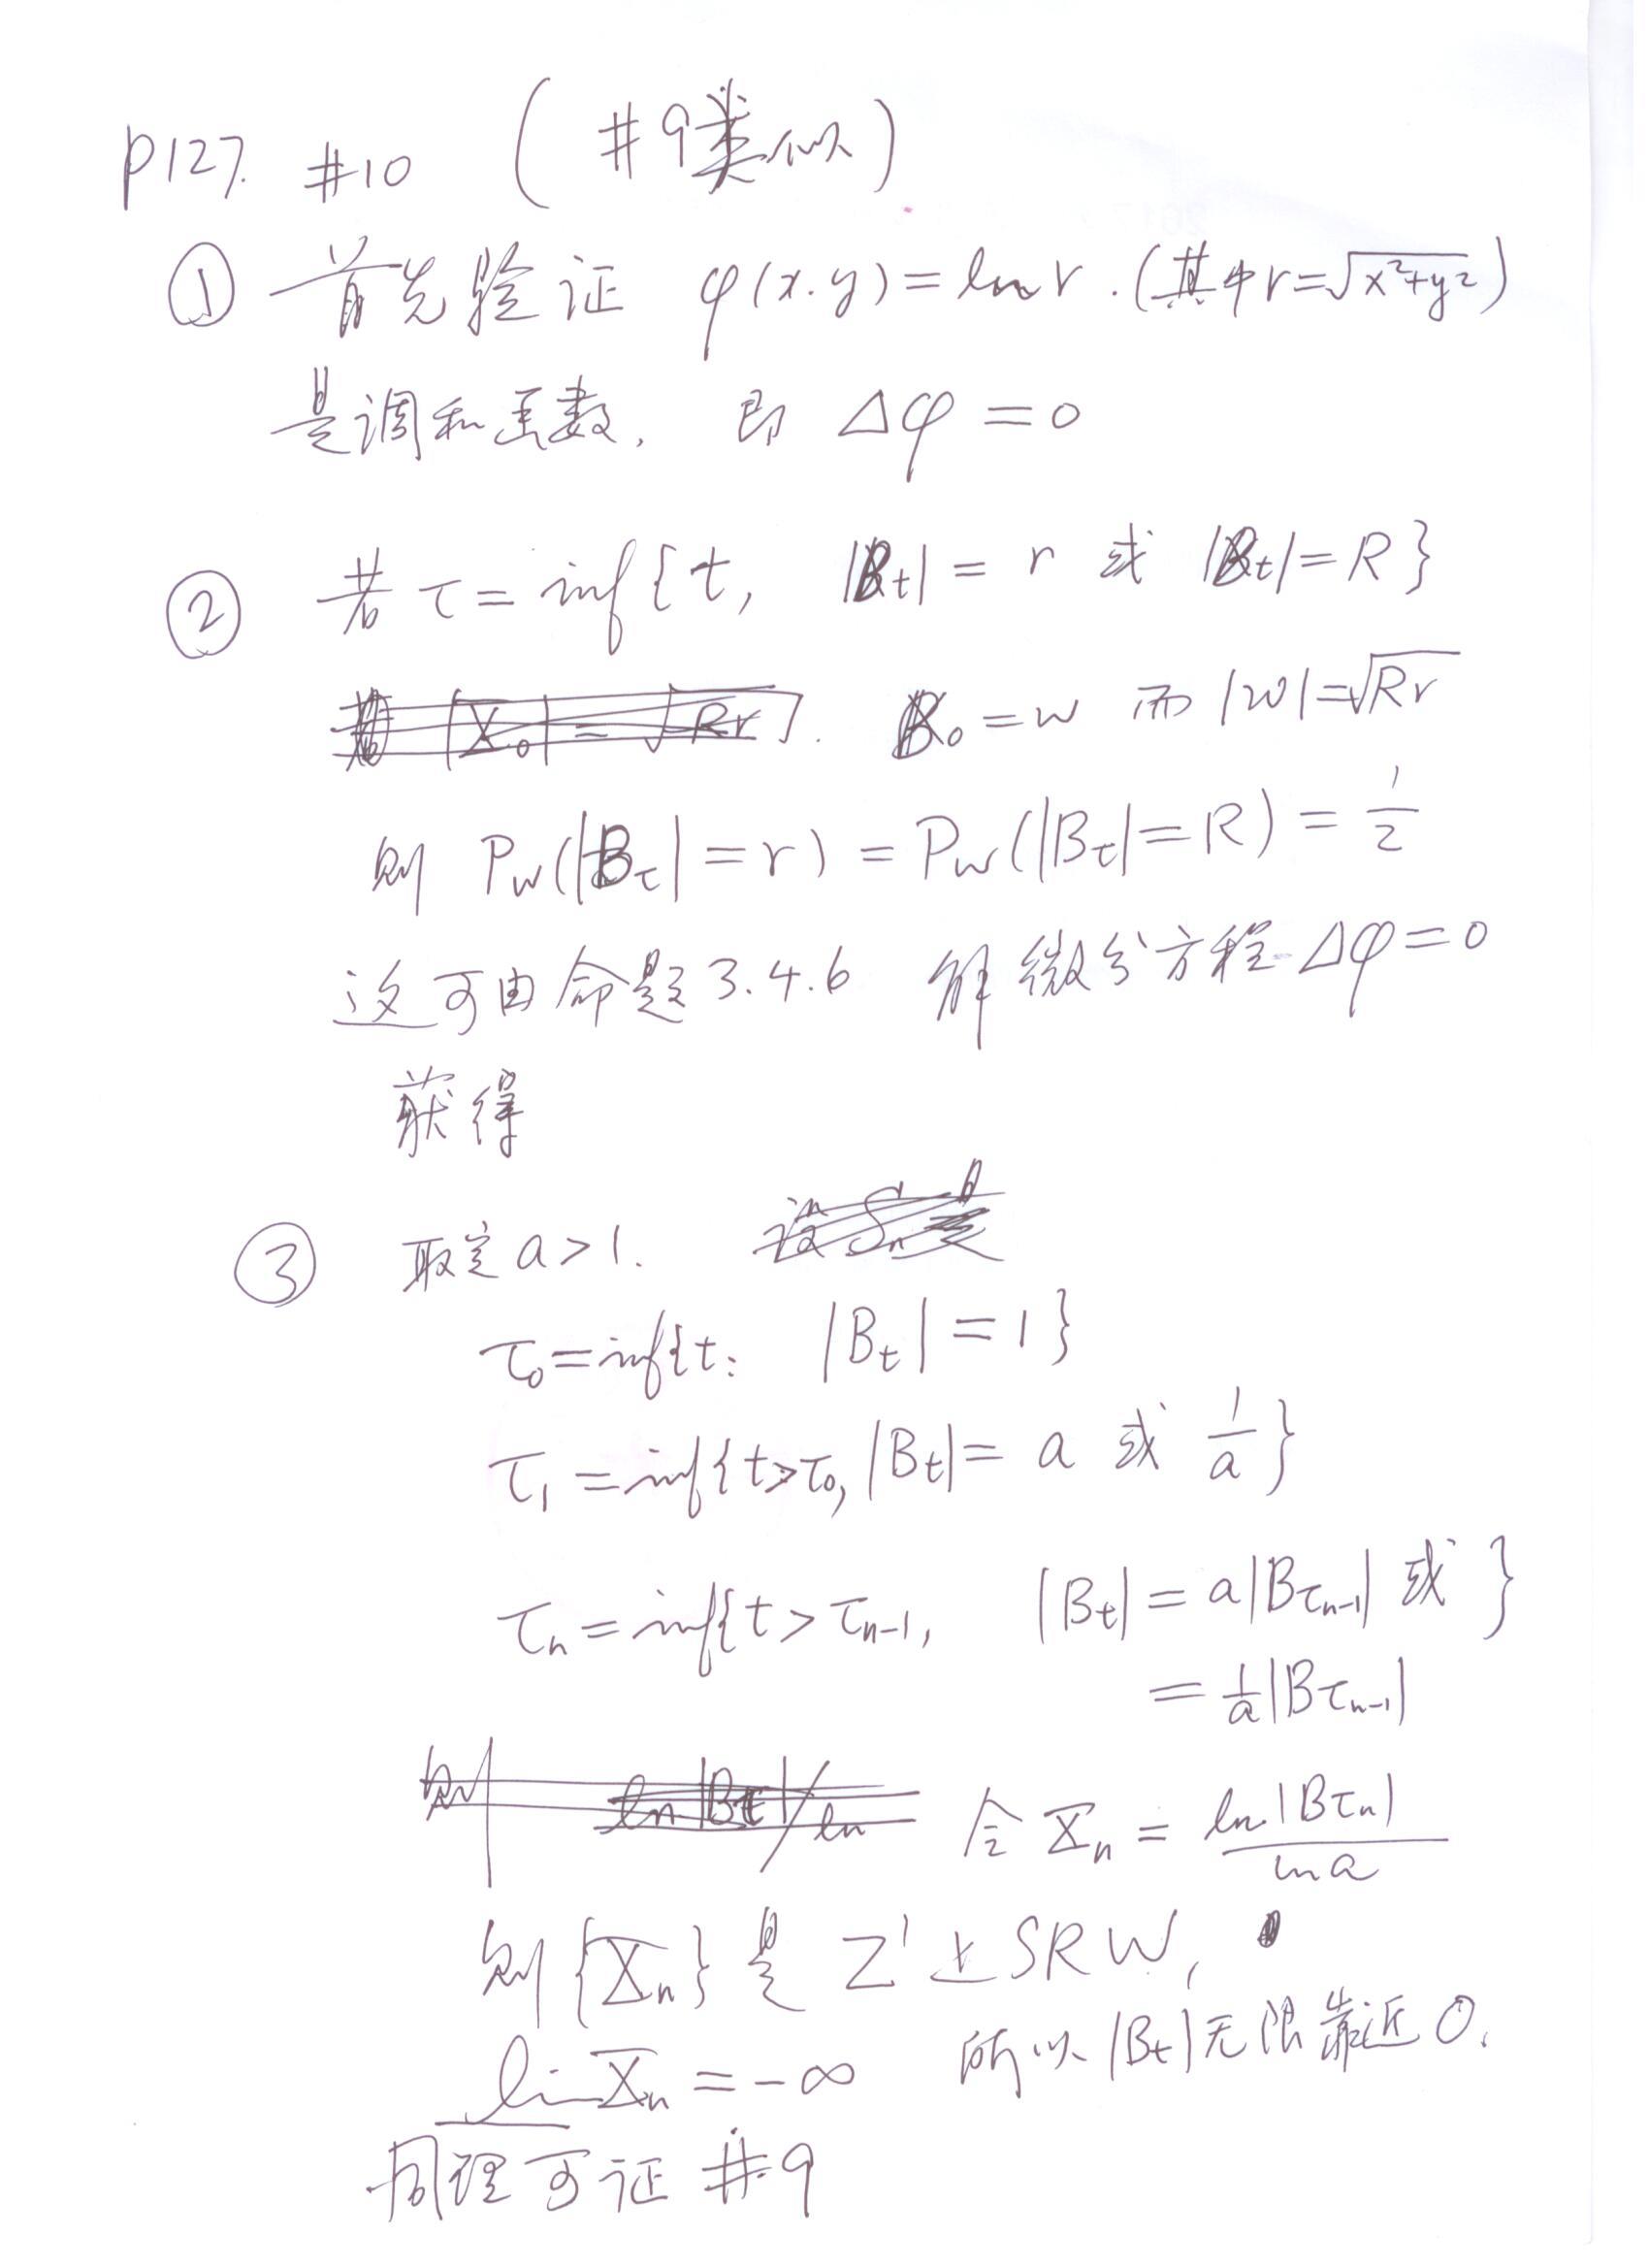 P127. #10 (#9类似)
① 首先验证 φ(x.y)=ln r.(其中r=√x²+y²)
是调和函数, 即 Δφ=0
② 若τ=inf{t, |Bt|=r 或 |Bt|=R}
B₀=w 而|w|=√Rr
则 Pw(|Bτ|=r)=Pw(|Bτ|=R)=1/2
这可由命题3.4.6 解微分方程Δφ=0
获得
③ 取定a>1.
τ₀=inf{t: |Bt|=1}
τ₁=inf{t>τ₀, |Bt|=a 或 1/a}
τn=inf{t>τn-1, |Bt|=a|Bτn-1| 或 }
=1/a|Bτn-1|
令 Xn=ln|Bτn|/ln a
则{Xn}是 Z¹上SRW,
lim Xn=-∞ 所以|Bt|无限靠近0.
同理可证 #9